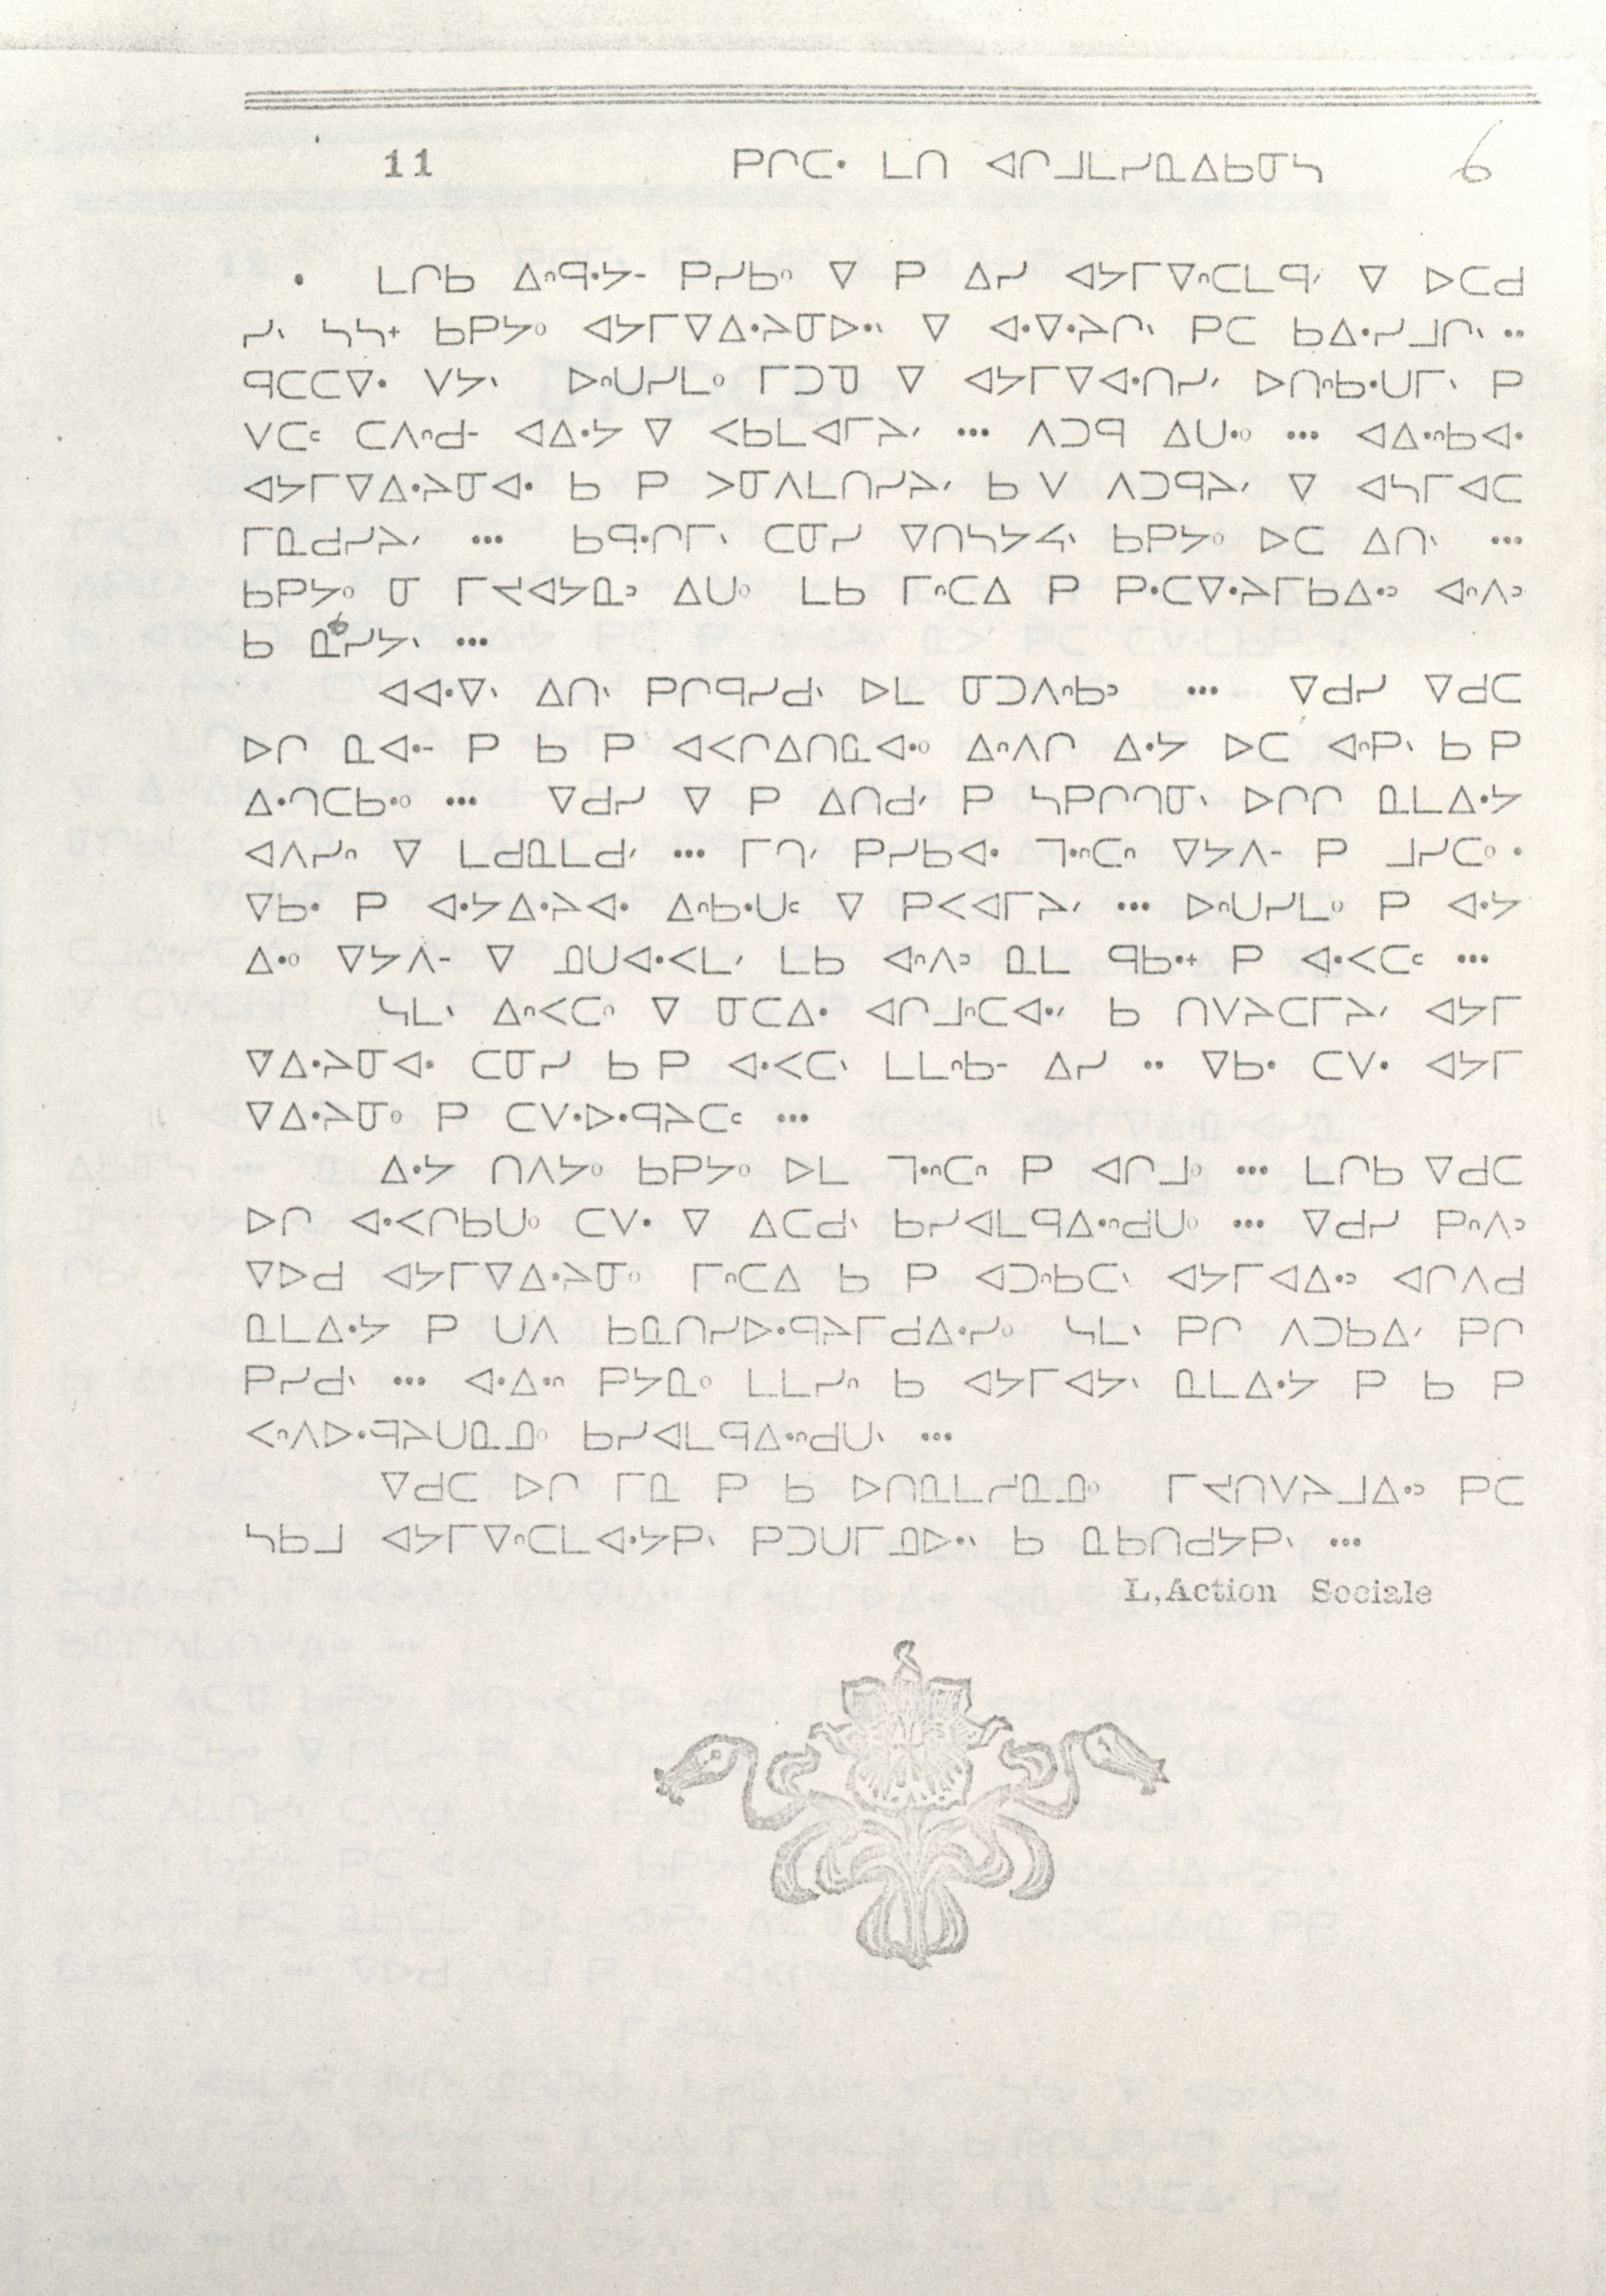 11 ᑭᒋᑕᐧ ᒪᑎ ᐊᒋᒧᒪᓯᓇᐃᑲᓂᓴ 6
ᒪᒋᑲ ᐃᐢᑫᐧᔭᐨ ᑭᓯᑲᐤ ᐁ ᑭ ᐃᓯ ᐊᔭᒥᐁᐢᑕᒪᑫᐟ ᐁ ᐅᑕᑯ
ᓯᐠ ᓴᓴᕀ ᑲᑭᔭᐤ ᐊᔭᒥᐁᐃᐧᔨᓂᐅᐧᐠ ᐁ ᐊᐧᐁᐧᔨᒋᐠ ᑭᑕ ᑲᐃᐧᓯᒧᒋᐠ ..
ᑫᑕᑕᐁᐧ ᐯᔭᐠ ᐅᐢᑌᓯᒪᐤ ᒥᑐᓀ ᐁ ᐊᔭᒥᐁᐊᐧᑎᓯᐟ ᐅᑎᐢᑲᐧᑌᒥᐠ ᑭ
ᐯᑕᑦ ᑕᐱᐢᑯᐨ ᐊᐃᐧᔭ ᐁ ᐸᑲᒪᐊᒥᔨᐟ ... ᐱᑐᑫ ᐃᑌᐧᐤ ... ᐊᐃᐧᐢᑲᐊᐧ
ᐊᔭᒥᐁᐃᐧᔨᓂᐊᐧ ᑲ ᑭ ᐳᓂᐱᒪᑎᓯᔨᐟ ᑲ ᐯ ᐱᑐᑫᔨᐟ ᐁ ᐊᓴᒥᐊᑕ
ᒥᓇᑯᓯᔨᐟ ... ᑲᑫᐧᒋᒥᐠ ᑕᓂᓯ ᐁᑎᓴᔭᔦᐠ ᑲᑭᔭᐤ ᐅᑕ ᐃᑎᐠ ...
ᑲᑭᔭᐤ ᓂ ᒥᔪᐊᔭᓇᐣ ᐃᑌᐤ ᒪᑲ ᒥᐢᑕᐃ ᑭ ᑭᐧᑕᐁᐧᔨᒥᑲᐃᐧᐣ ᐊᐢᐱᐣ
ᑲ ᓇᓯᔭᐠ ...
ᐊᐊᐧᐁᐠ ᐃᑎᐠ ᑭᒋᑫᓯᑯᐠ ᐅᒪ ᓂᑐᐱᐢᑲᐣ ... ᐁᑯᓯ ᐁᑯᑕ
ᐅᒋ ᓇᐊᐧᐨ ᑭ ᑲ ᑭ ᐊᐸᒋᐃᑎᓈᐊᐧᐤ ᐃᐢᐱᒋ ᐃᐧᔭ ᐅᑕ ᐊᐢᑭᐠ ᑲ ᑭ
ᐃᐧᒉᑕᑲᐧᐤ ... ᐁᑯᓯ ᐁ ᑭ ᐃᑎᑯᐟ ᑭ ᓴᑭᒋᒉᓂᐠ ᐅᒋᒋ ᓇᒪᐃᐧᔭ
ᐊᐱᓯᐢ ᐁ ᒪᑯᓇᒪᑯᐟ ... ᒥᒉᐟ ᑭᓯᑲᐊᐧ ᒣᐧᐢᑕᐢ ᐁᔭᐱᐨ ᑭ ᒧᓯᑕᐤ .
ᐁᑲᐧ ᑭ ᐊᐧᔭᐃᐧᔨᐊᐧ ᐃᐢᑲᐧᑌᑦ ᐁ ᑭᐸᐊᒥᔨᐟ ... ᐅᐢᑌᓯᒪᐤ ᑭ ᐊᐧᔭ
ᐃᐧᐤ ᐁᔭᐱᐨ ᐁ ᓄᑌᐊᐧᐸᒪᐟ ᒪᑲ ᐊᐢᐱᐣ ᓇᒪ ᑫᑲᐧᕀ ᑭ ᐊᐧᐸᑕᑦ ...
ᓴᒪᐠ ᐃᐢᐸᑕᐤ ᐁ ᓂᑕᐃᐧ ᐊᒋᒧᐢᑕᐊᐧᐟ ᑲ ᑎᐯᔨᑕᒥᔨᐟ ᐊᔭᒥ
ᐁᐃᐧᔨᓂᐊᐧ ᑕᓂᓯ ᑲ ᑭ ᐊᐧᐸᑕᐠ ᒪᒪᐢᑲᐨ ᐃᓯ .. ᐁᑲᐧ ᑕᐯᐧ ᐊᔭᒥ
ᐁᐃᐧᔨᓂᐤ ᑭ ᑕᐯᐧᐅᐧᑫᔨᑕᑦ ...
ᐃᐧᔭ ᑎᐱᔭᐤ ᑲᑭᔭᐤ ᐅᒪ ᒣᐧᐢᑕᐢ ᑭ ᐊᒋᒧᐤ ... ᒪᒋᑲ ᐁᑯᑕ
ᐅᒋ ᐊᐧᐸᒋᑲᑌᐤ ᑕᐯᐧ ᐁ ᐃᑕᑯᐠ ᑲᓯᐊᒪᑫᐃᐧᐢᑯᑌᐤ ... ᐁᑯᓯ ᑭᐢᐱᐣ
ᐁᐅᑯ ᐊᔭᒥᐁᐃᐧᔨᓂᐤ ᒥᐢᑕᐃ ᑲ ᑭ ᐊᑐᐢᑲᑕᐠ ᐊᔭᒥᐊᐃᐧᐣ ᐊᒋᐱᑯ
ᓇᒪᐃᐧᔭ ᑭ ᑌᐱ ᑲᓇᑎᓯᐅᐧᑫᔨᒥᑯᐃᐧᓯᐤ ᓴᒪᐠ ᑭᒋ ᐱᑐᑲᐃᐟ ᑭᒋ
ᑭᓯᑯᐠ ... ᐊᐧᐃᐧᐢ ᑭᔭᓇᐤ ᒪᒪᓯᐢ ᑲ ᐊᔭᒥᐊᔭᐠ ᓇᒪᐃᐧᔭ ᑭ ᑲ ᑭ
ᐸᐢᐱᐅᐧᑫᔨᑌᓇᓄᐤ ᑲᓯᐊᒪᑫᐃᐧᐢᑯᑌᐠ ...
ᐁᑯᑕ ᐅᒋ ᒥᓇ ᑭ ᑲ ᐅᑎᓇᒪᓱᓇᓄᐤ ᒥᔪᑎᐯᔨᒧᐃᐧᐣ ᑭᑕ
ᓴᑲᒧ ᐊᔭᒥᐁᐢᑕᒪᐊᐧᔭᑭᐠ ᑭᑐᑌᒥᓄᐅᐧᐠ ᑲ ᓇᑲᑎᑯᔭᑭᐠ ...
L,Action Sociale